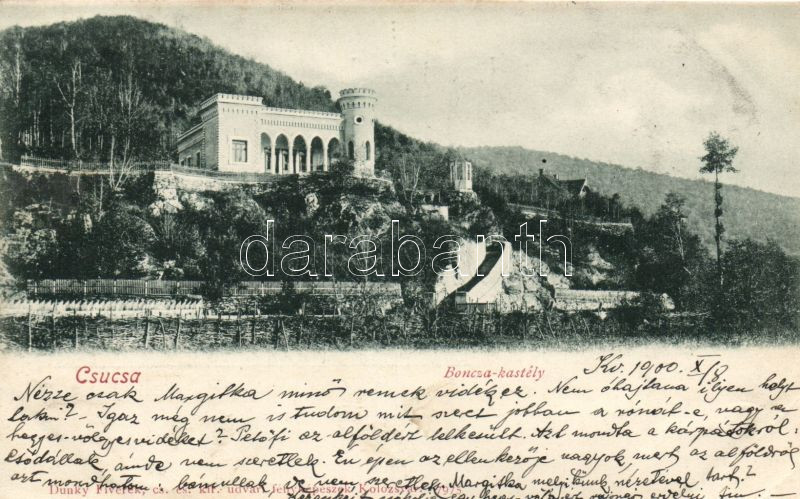 darabanth
Csucsa
Boncza-kastély
Kv. 1900. X/8
Nézze csak Margitka minő remek vidék ez. Nem óhajtana ilyen helyt
lakni? Igaz még nem is tudom mit szeret jobban a rónát-e, vagy a
hegyes-völgyes vidéket? Petőfi az alföldért lelkesült. Azt mondta a kárpátokról:
Csodállak, ámde nem szeretlek. Én épen az ellenkezője vagyok, mert az alföldről
azt mondhatom: bámullak de nem szeretlek. Margitka melyikünk nézetével tart?
Dunky Fivérek, cs. és. kir. udvari fényképészek Kolozsvár.